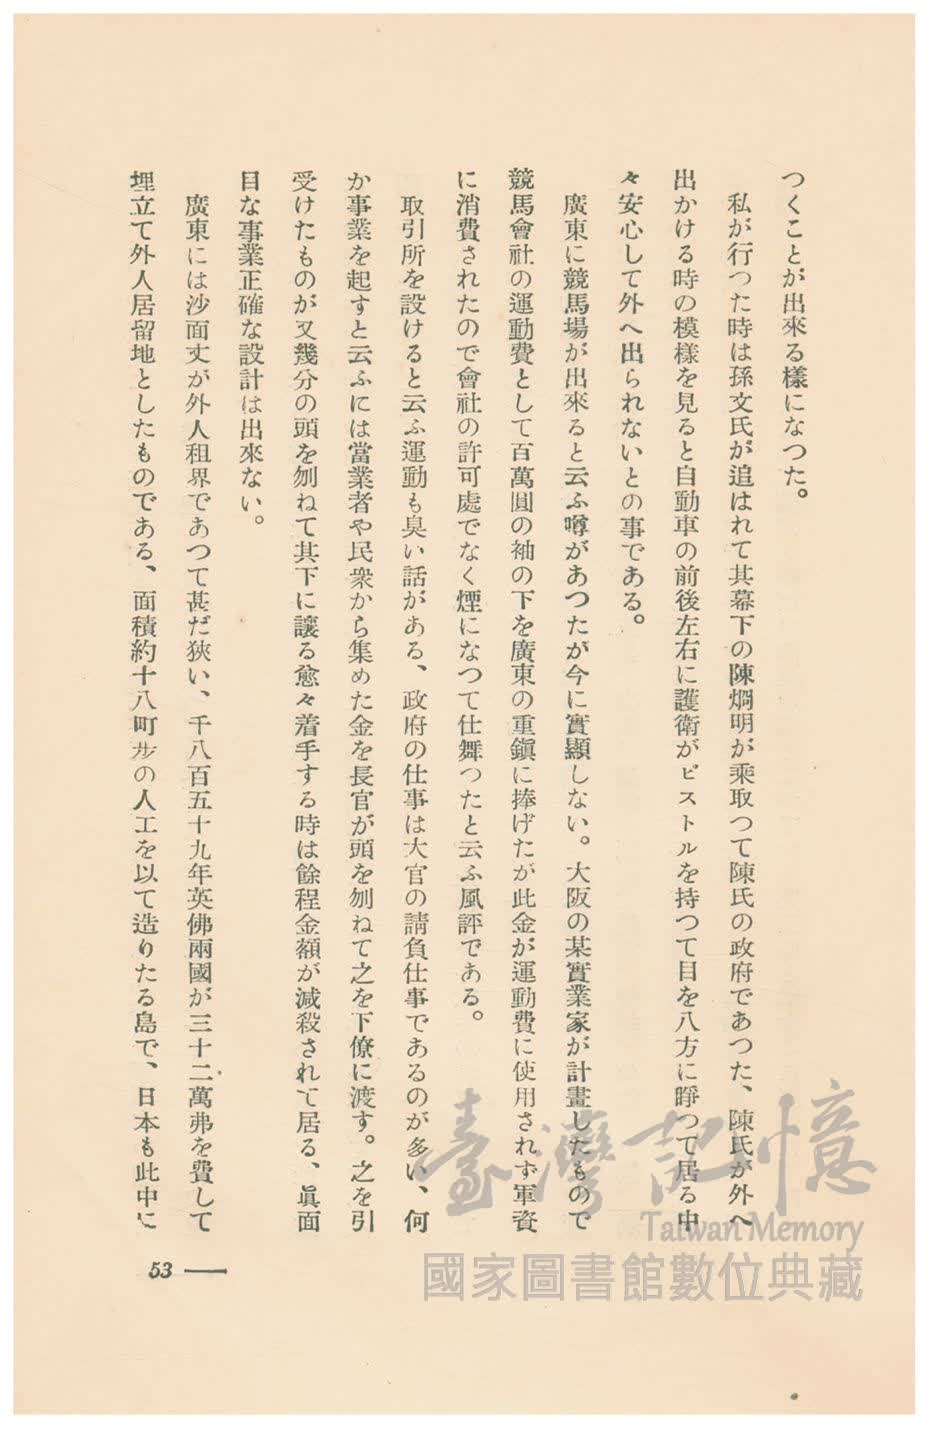 つくことが出來る樣になつた。
私が行つた時は孫文氏が追はれて其幕下の陳烱明が乘取つて陳氏の政府であつた、陳氏が外へ
出かける時の模樣を見ると自動車の前後左右に護衛がピストルを持つて目を八方に睜つて居る中
々安心して外へ出られないとの事である。
廣東に競馬場が出來ると云ふ噂があつたが今に實顯しない。大阪の某實業家が計畫したもので
競馬會社の運動費として百萬圓の袖の下を廣東の重鎭に捧げたが此金が運動費に使用されず軍資
に消費されたので會社の許可處でなく煙になつて仕舞つたと云ふ風評である。
取引所を設けると云ふ運動も臭い話がある、政府の仕事は大官の請負仕事であるのが多い、何
か事業を起すと云ふには當業者や民衆から集めた金を長官が頭を刎ねて之を下僚に渡す。之を引
受けたものが又幾分の頭を刎ねて其下に讓る愈々着手する時は餘程金額が減殺されて居る、眞面
目な事業正確な設計は出來ない。
廣東には沙面丈が外人租界であつて甚だ狹い、千八百五十九年英佛兩國が三十二萬弗を費して
埋立て外人居留地としたものである、面積約十八町步の人工を以て造りたる島で、日本も此中に
53
臺灣記憶
Taiwan Memory
國家圖書館數位典藏